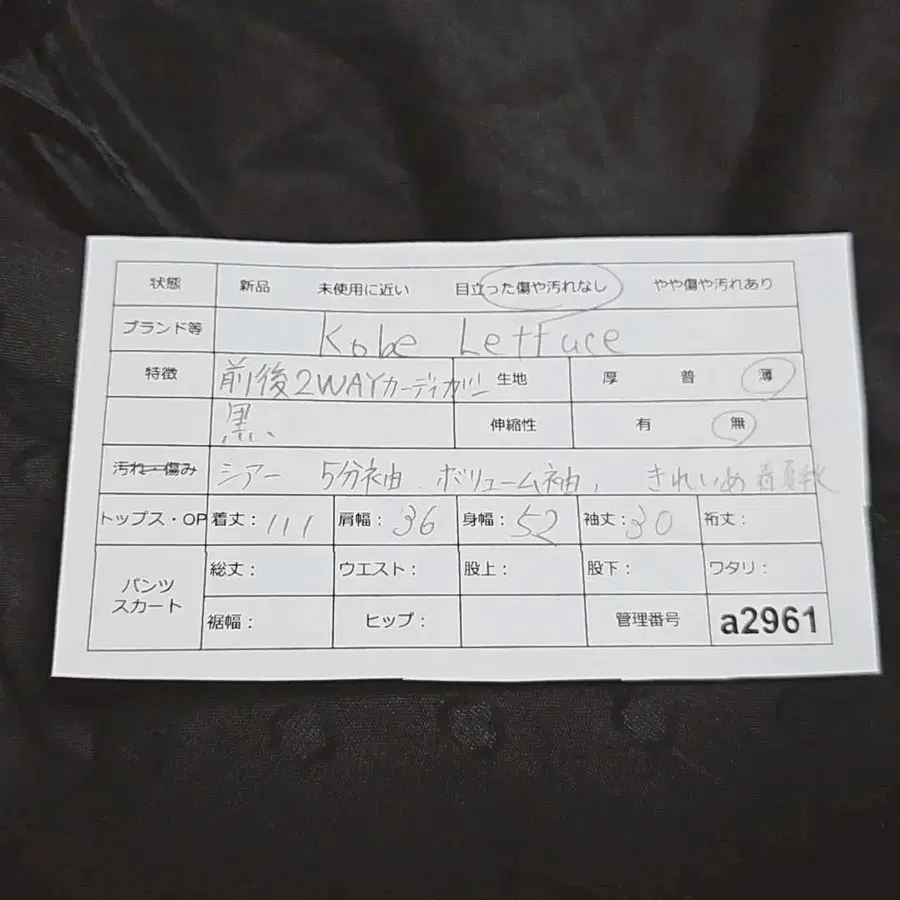 状態 新品 未使用に近い 目立った傷や汚れなし やや傷や汚れあり
ブランド等 Kobe Lettuce
特徴 前後2WAYカーディガン 生地 厚 普 薄
黒、 伸縮性 有 無
汚れ・傷み シアー 5分袖 ボリューム袖、 きれいめ 春夏秋
トップス・OP 着丈: 111 肩幅: 36 身幅: 52 袖丈: 30 裄丈:
パンツ スカート 総丈: ウエスト: 股上: 股下: ワタリ:
裾幅: ヒップ: 管理番号 a2961